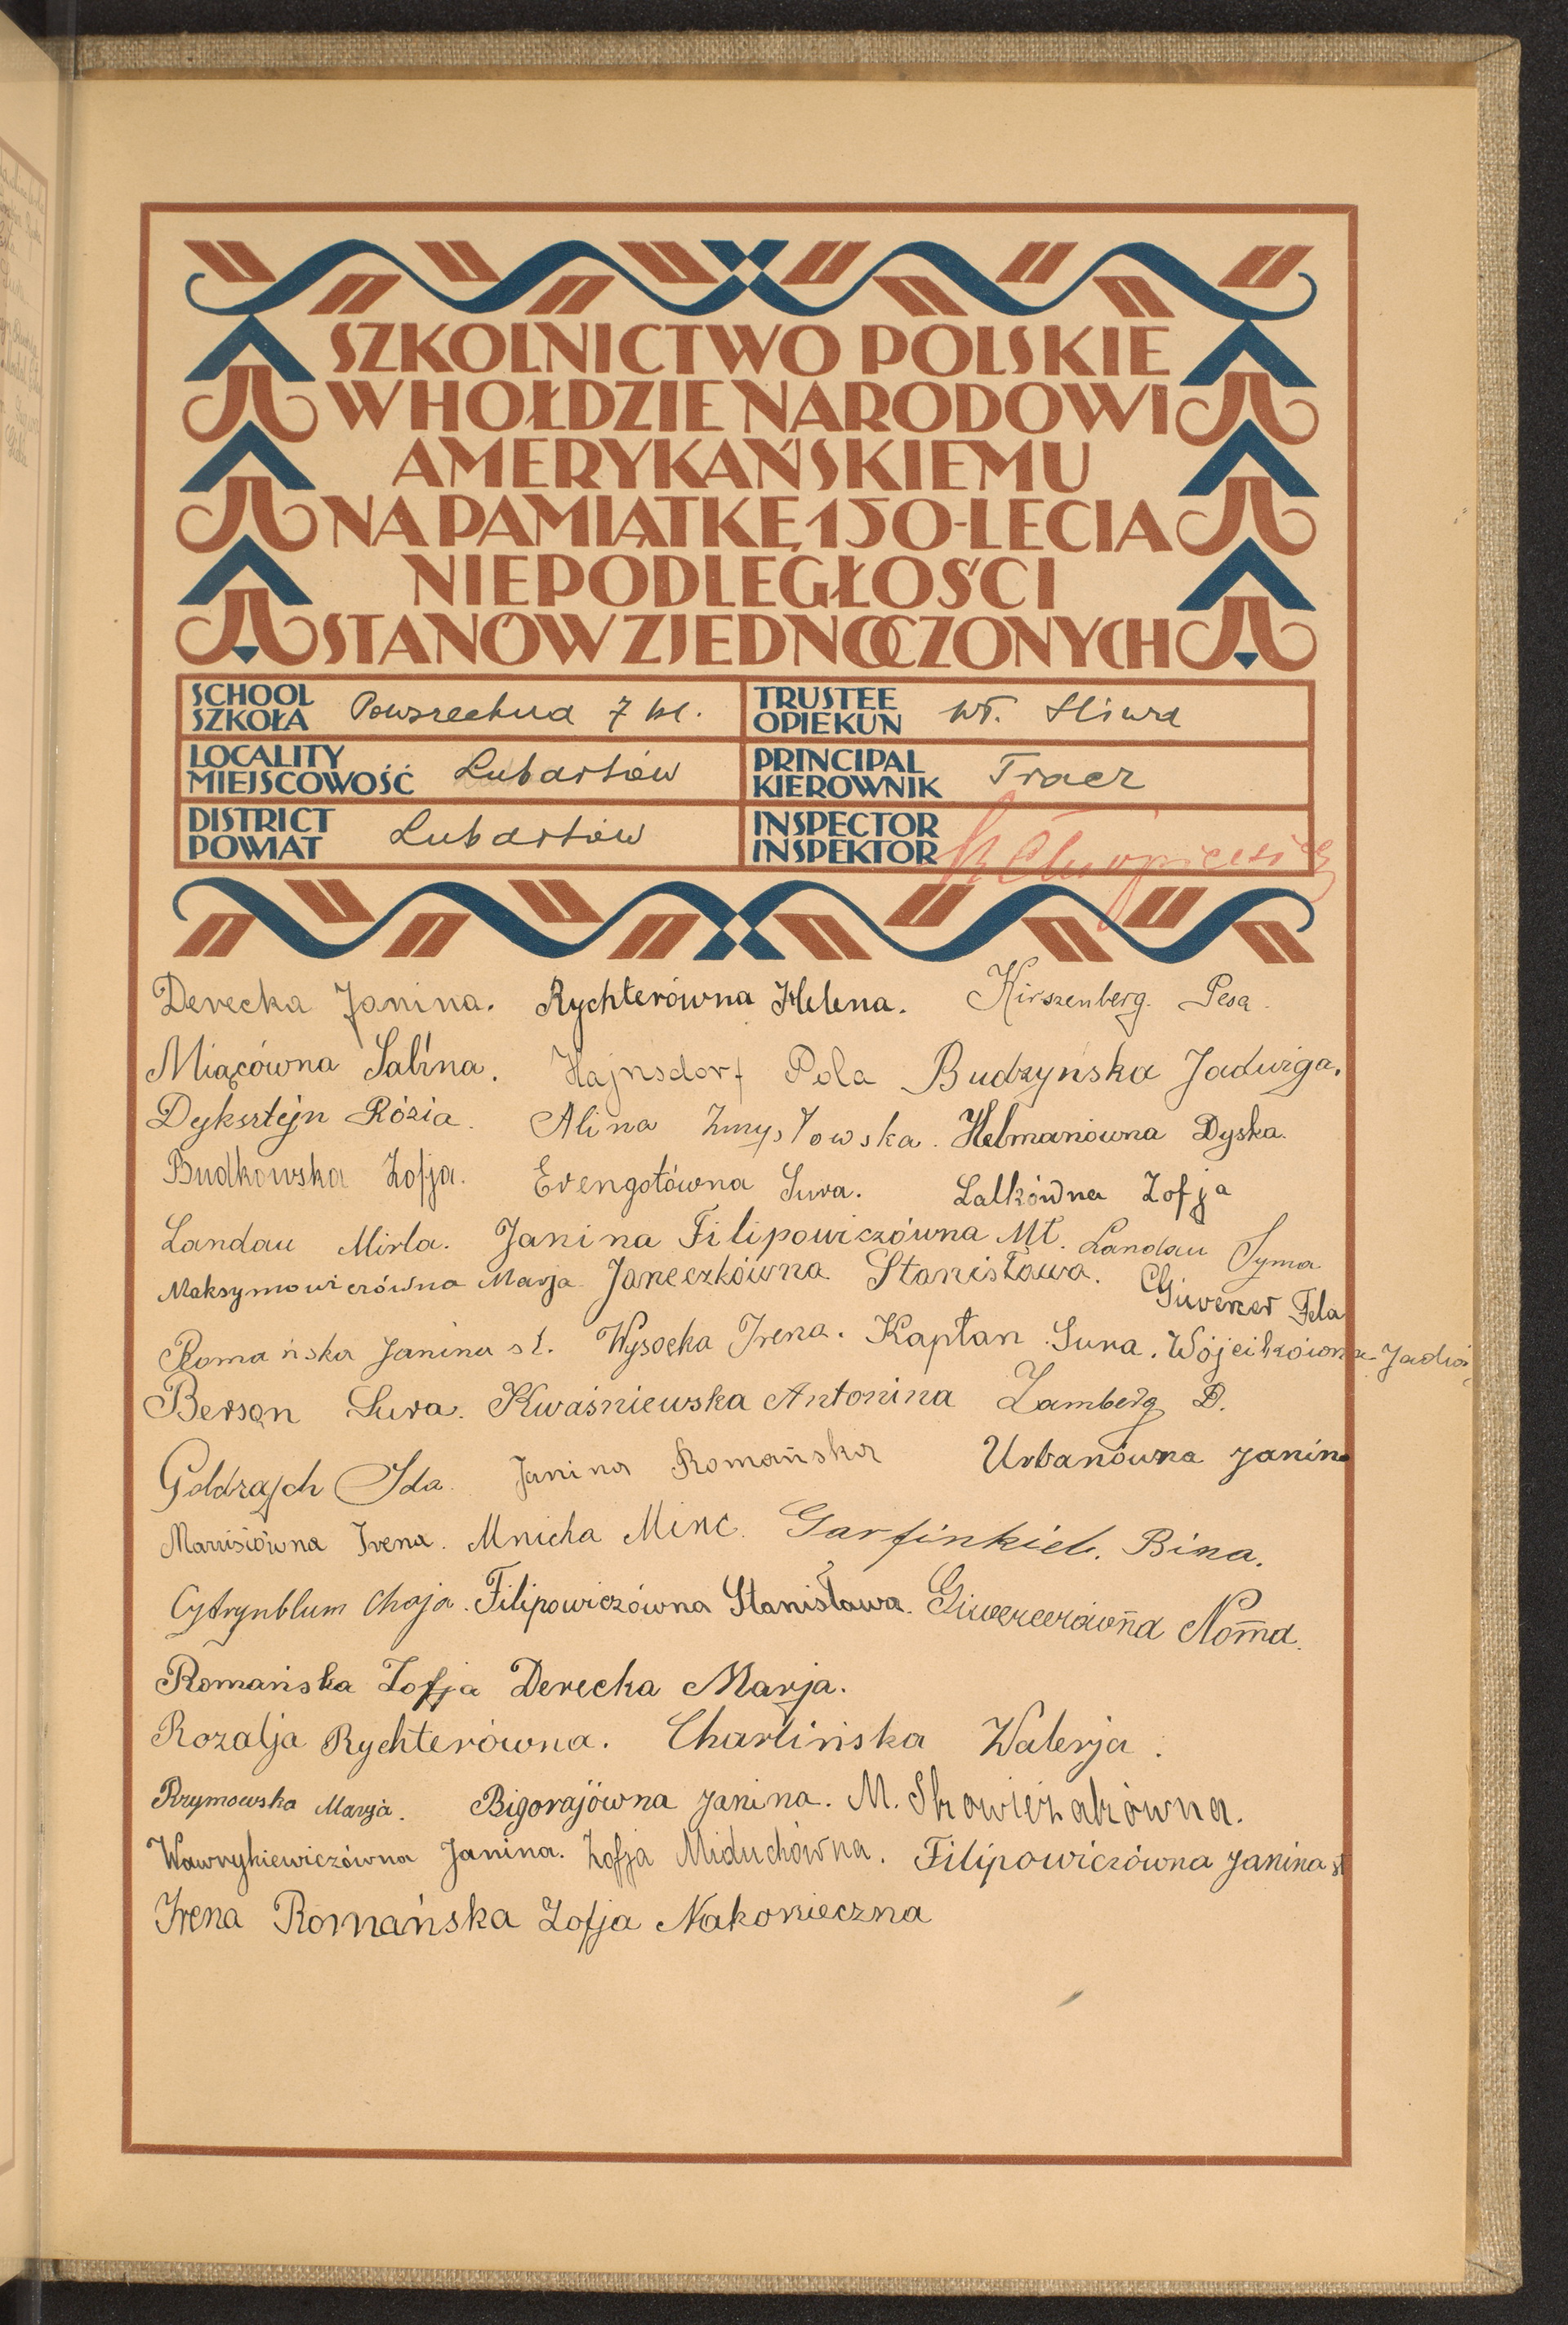 SZKOLNICTWO POLSKIE
W HOŁDZIE NARODOWI
AMERYKAŃSKIEMU
NA PAMIĄTKĘ 150-LECIA
NIEPODLEGŁOŚCI
STANÓW ZJEDNOCZONYCH
SCHOOL
SZKOŁA Powszechna 7 kl.
TRUSTEE
OPIEKUN Wł. Śliwa
LOCALITY
MIEJSCOWOŚĆ Lubartów
PRINCIPAL
KIEROWNIK Tracz
DISTRICT
POWIAT Lubartów
INSPECTOR
INSPEKTOR
Derecka Janina. Rychterówna Helena. Kirszenberg. Pesa.
Miącówna Sabina. Hajnsdorf Pola Budzyńska Jadwiga.
Dyksztejn Rózia. Alina Zmysłowska. Helmanówna Dyska.
Budkowska Zofja. Erengotówna Sura. Lalkówna Zofja
Landau Mirla. Janina Filipowiczówna Mł. Landau Syma
Maksymowiczówna Marja Janeczkówna Stanisława. Giwercer Fela
Romańska Janina st. Wysocka Irena. Kapłan Sura. Wójcikówna Jadwi
Berson Sura. Kwaśniewska Antonina Zamberg D.
Goldrajch Ida. Janina Romańska Urbanówna Janina
Marusiówna Irena. Mnicha Minc. Garfinkiel. Bina.
Cytrynblum Chaja. Filipowiczówna Stanisława. Giwercerówna Noma.
Romańska Zofja Derecka Marja.
Rozalja Rychterówna. Charlińska Walerja.
Rzymowska Marja. Bigorajówna Janina. M. Skowieżakówna.
Wawrykiewiczówna Janina. Zofja Miduchówna. Filipowiczówna Janina st
Irena Romańska Zofja Nakonieczna